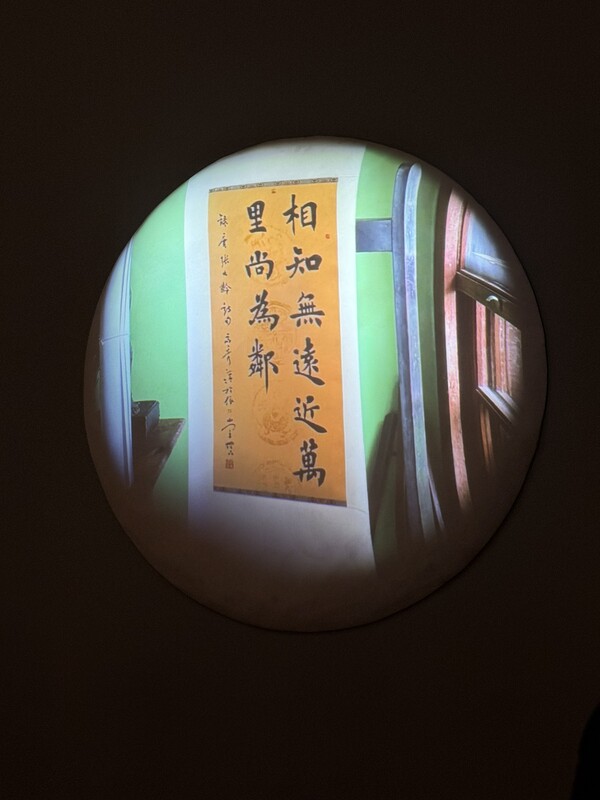 相知無遠近萬
里尚為鄰
唐張九齡詩句